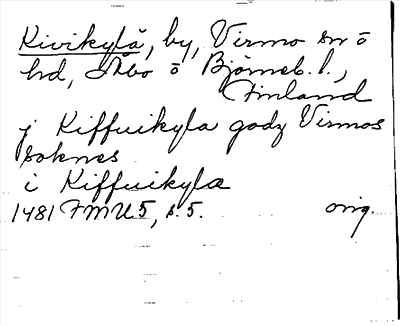 Kivikylä, by, Virmo sn o
hd, Åbo o Björneb. l.,
Finland
j Kiffuikyla godz Virmos
soknes
i Kiffuikylæ
1481 FMU5, s. 5. orig.